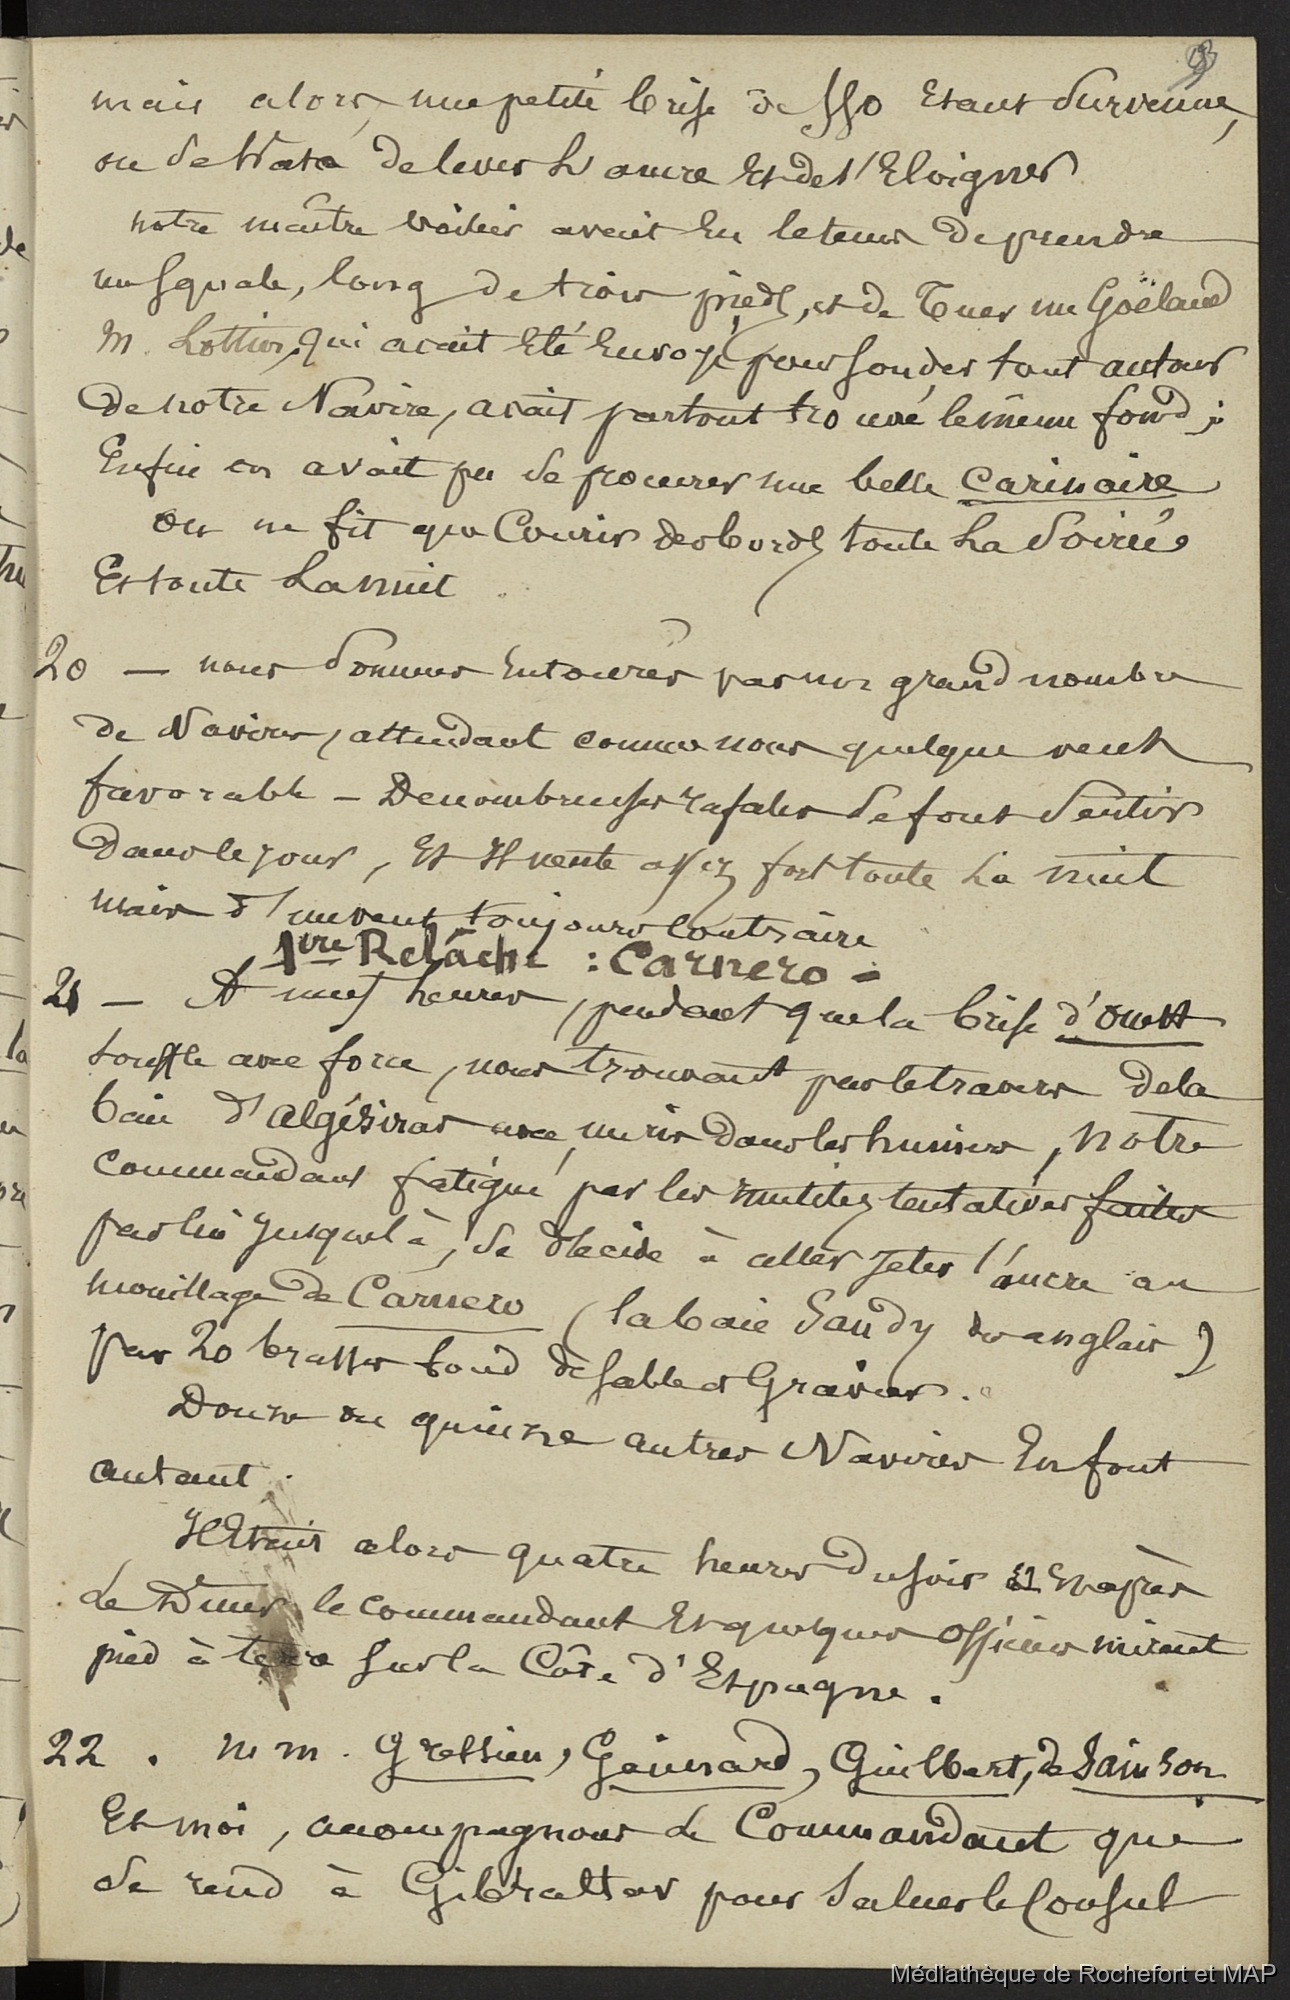 mais alors, une petite brise de SSO Etant Survenue,
on se hata de lever L'ancre Et de s'Eloigner
notre maître voilier avait Eu le tems de prendre
un Squale, long de trois pieds, et de Tuer un Goëland
M. Lottin, qui avait Eté Envoyé pour sonder tout autour
de notre Navire, avait partout trouvé le même fond ;
Enfin on avait pu se procurer une belle Carinaire
On ne fit que Courir des bords toute La Soirée
Et toute La nuit
20 — nous Sommes Entourés par un grand nombre
de Navires, attendant comme nous quelque vent
favorable — De nombreuses rafales se font Sentir
dans le jour, Et Il vente assez fort toute La nuit
mais d'un vent toujours Contraire
1ère Relâche : Carnero =
21 — A neuf heures, pendant que la brise d'ouest
souffle avec force, nous trouvant par le travers de la
baie d'algésiras avec un ris dans les huniers, notre
commandant fatigué par les inutiles tentatives faites
par lui jusques là, se décide à aller jeter l'ancre au
mouillage de Carnero (la baie Sandy des anglais)
par 20 brasses fond de sable & Gravier.
Douze ou quinze autres Navires En font
autant.
Il Etait alors quatre heures du soir Et Après
le Diner le commandant Et quelques officiers mirent
pied à terre sur la Côte d'Espagne.
22 . M M. Gressien, Gaimard, Guilbert, de Sainson
Et moi, acompagnons le Commandant qui
se rend à Gibraltar pour saluer le Consul
Médiathèque de Rochefort et MAP